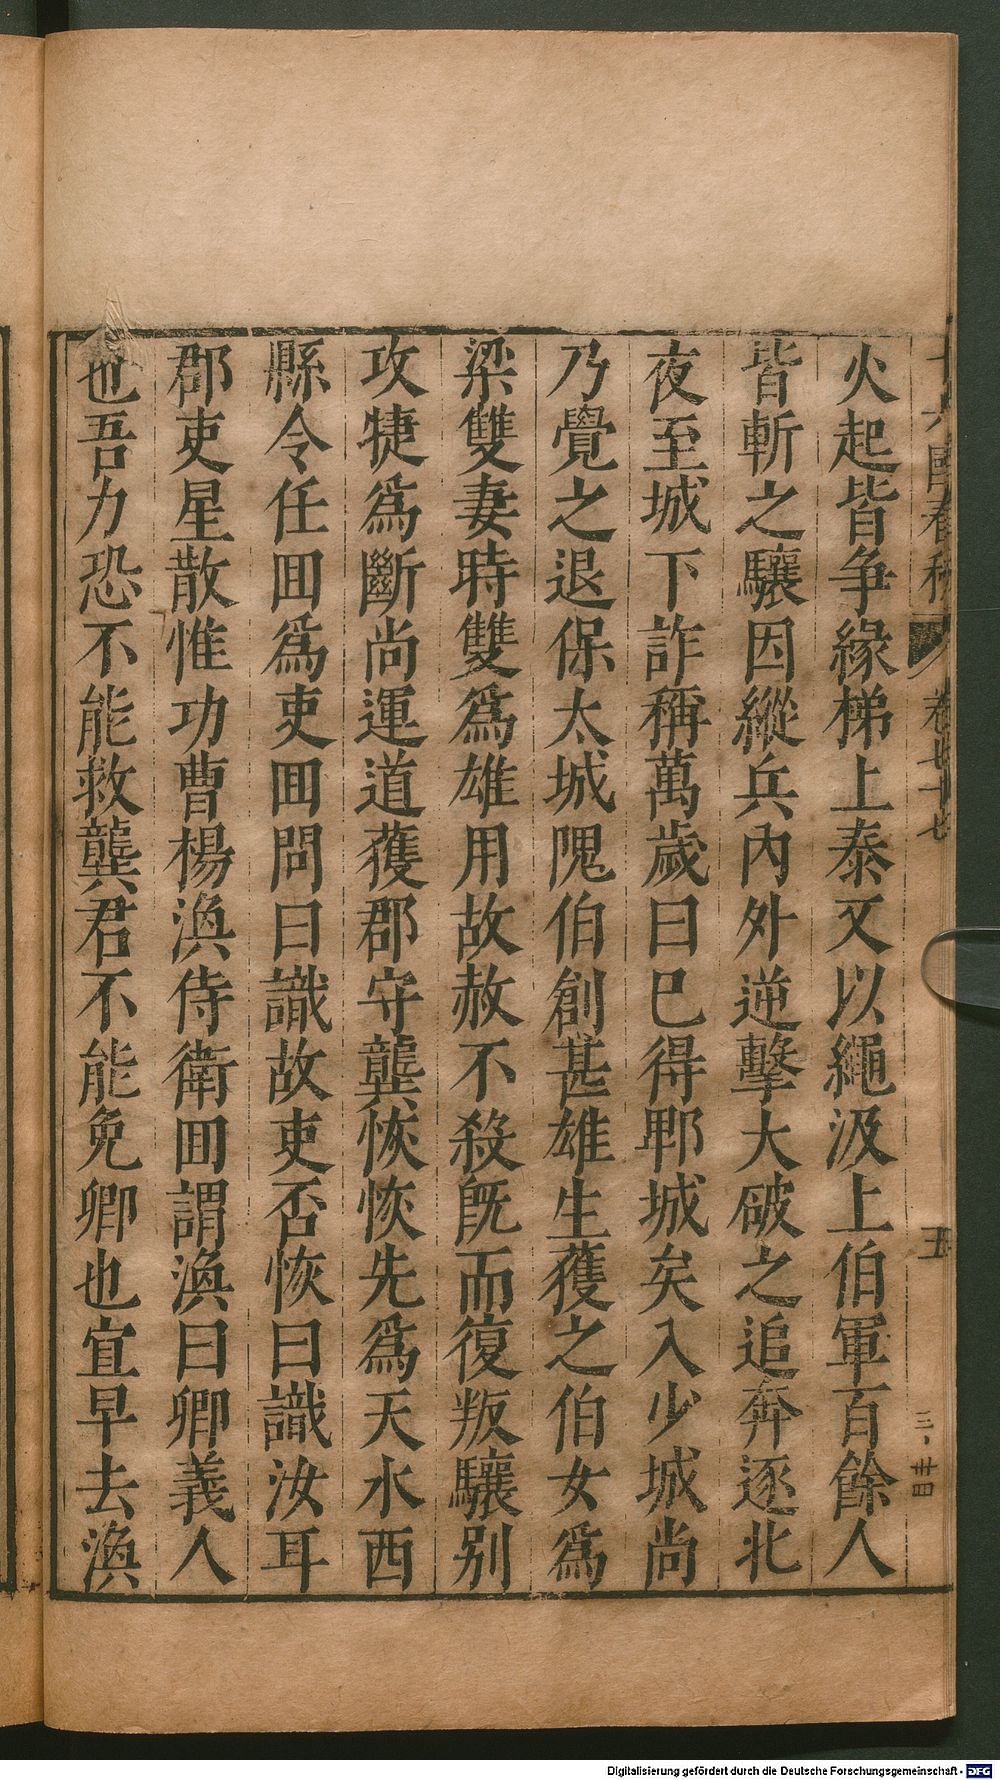 火起皆争緣梯上泰又以繩汲上伯軍百餘人
皆斬之驤因縱兵內外逆擊大破之追奔逐北
夜至城下詐稱萬歲曰巳得郫城矣入少城尚
乃覺之退保太城隗伯創甚雄生獲之伯女爲
梁雙妻時雙爲雄用故赦不殺旣而復叛驤別
攻㨗爲斷尚運道獲郡守龔恢恢先爲天水西
縣令任囬爲吏囬問曰識故吏否恢曰識汝耳
郡吏星散惟功曹楊渙侍衛囬謂渙曰卿義人
也吾力恐不能救龔君不能免卿也宜早去渙
十六國春秋 卷七十七 五
Digitalisierung gefördert durch die Deutsche Forschungsgemeinschaft - DFG